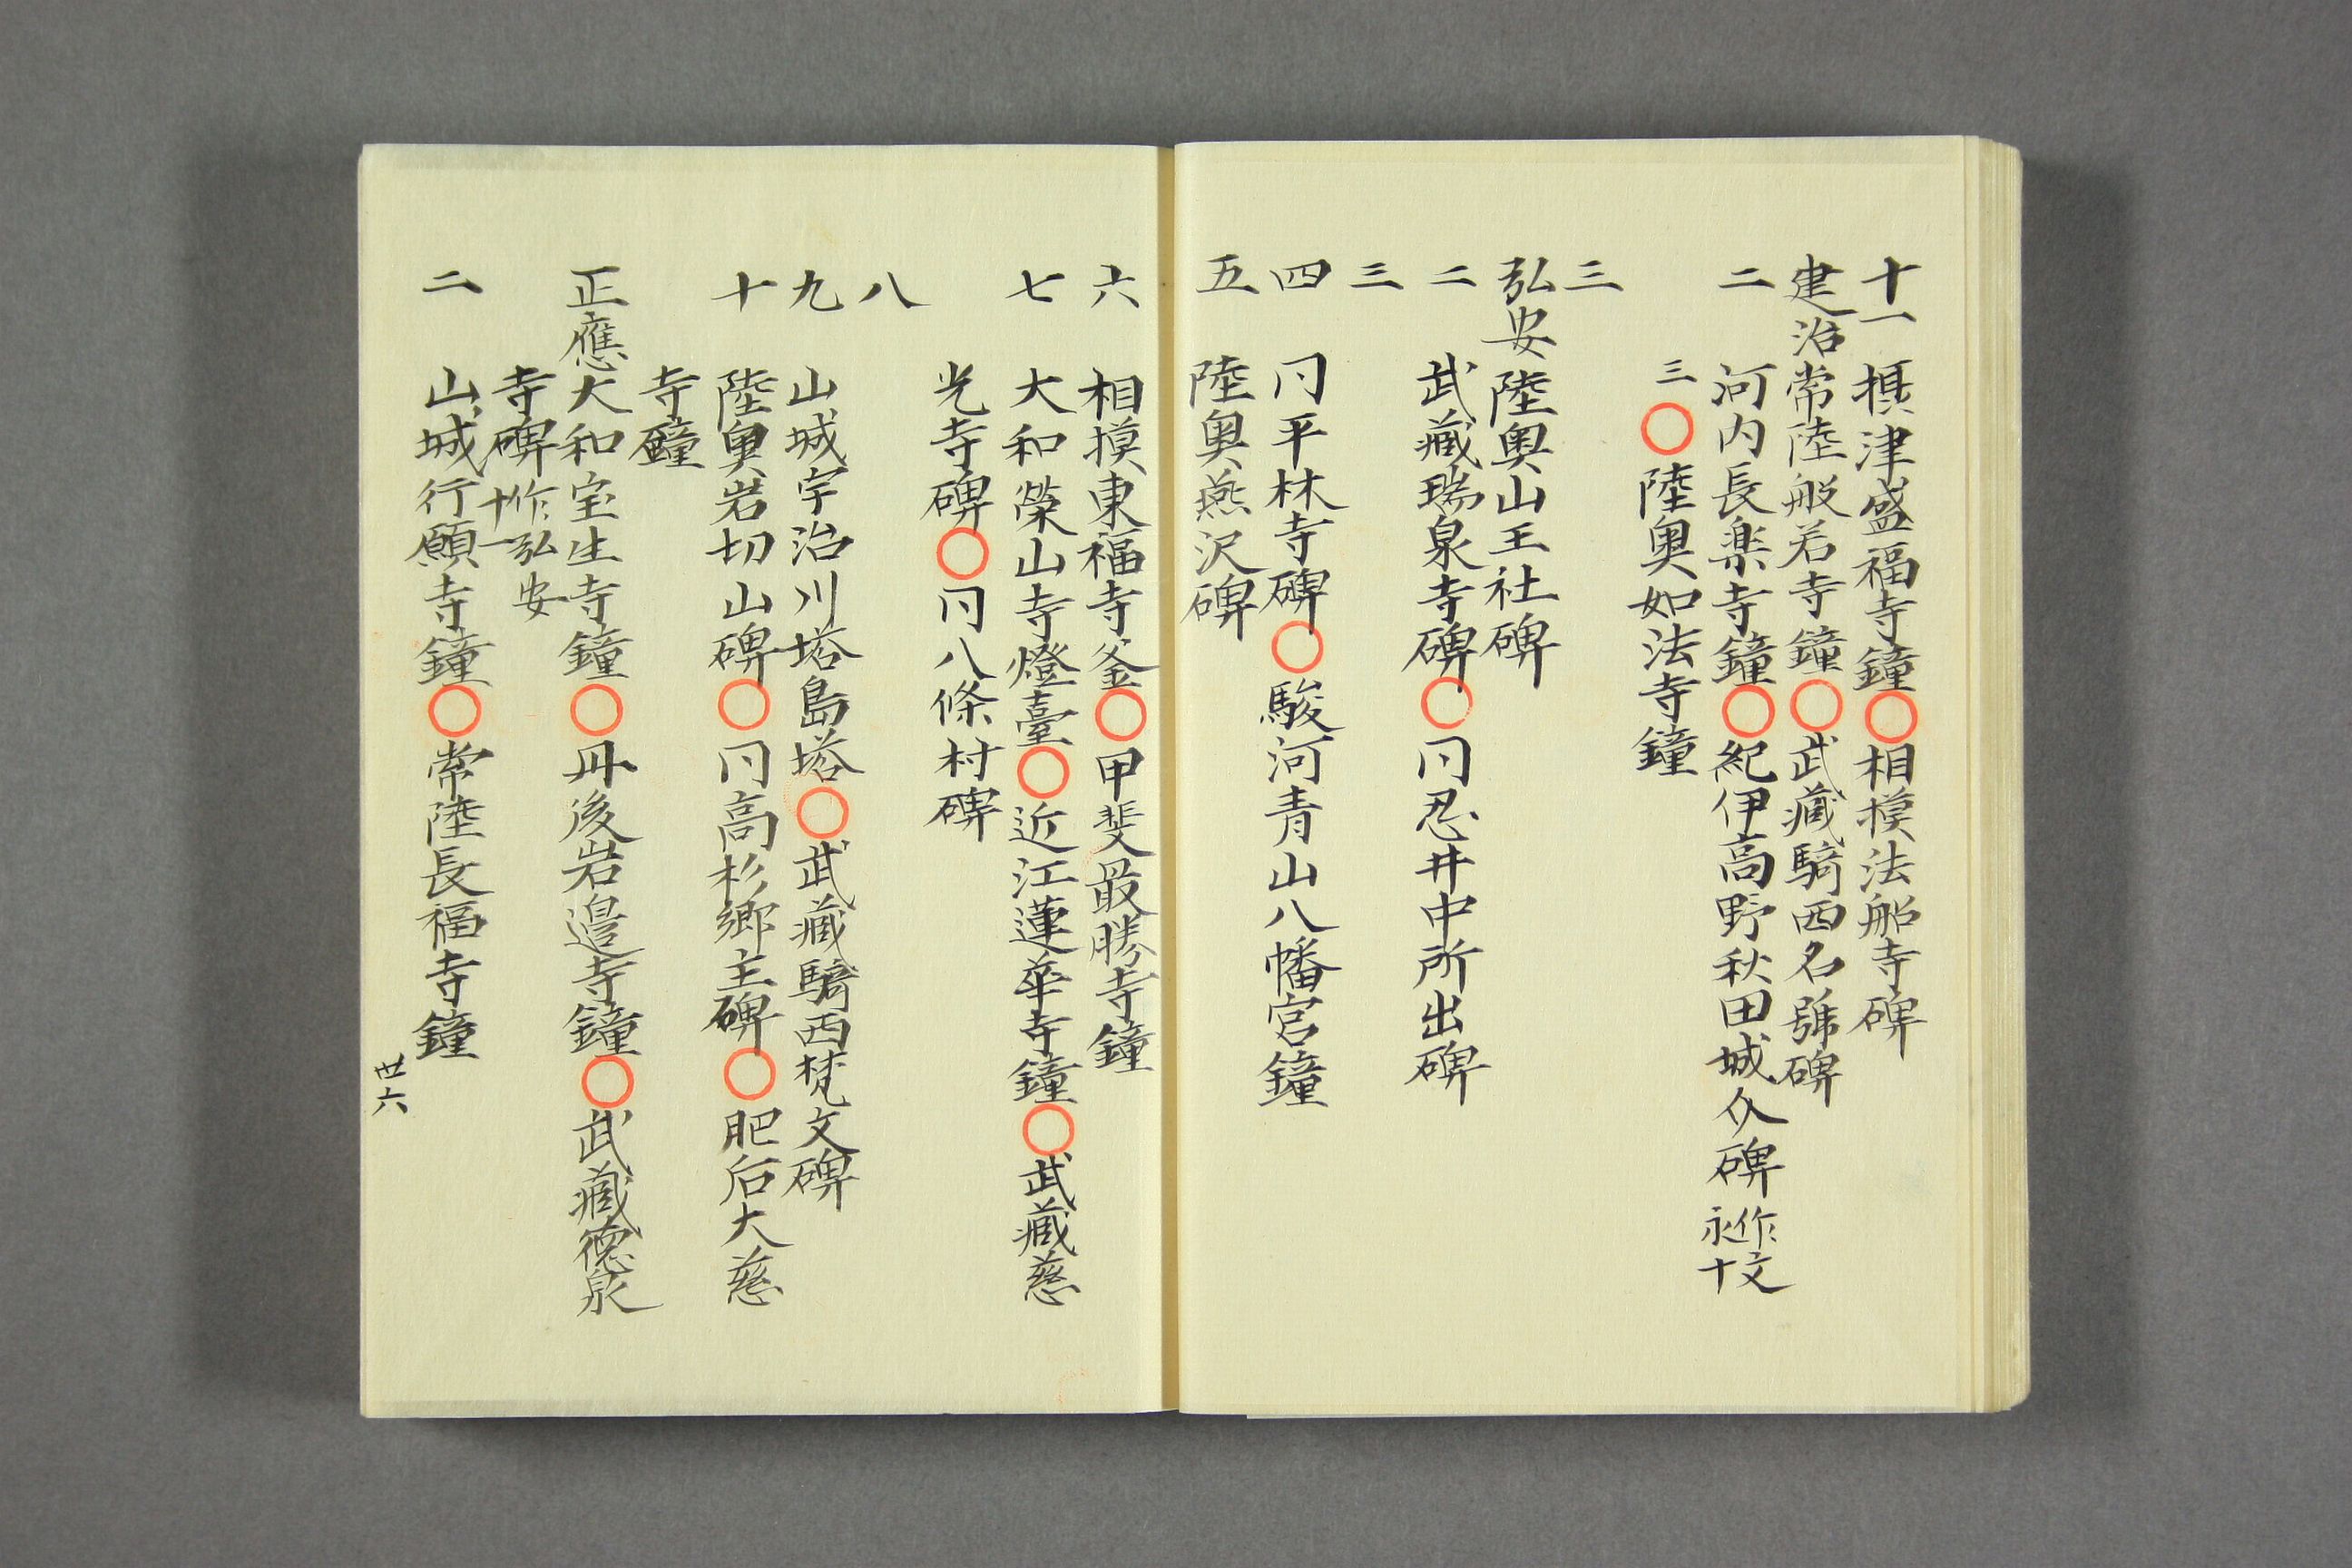 十一 摂津盛福寺鐘○相模法船寺碑
建治 常陸般若寺鐘○武藏騎西名號碑
二 河内長楽寺鐘○紀伊高野秋田城介碑 作文永十
三○陸奥如法寺鐘
三
弘安 陸奥山王社碑
二 武藏瑞泉寺碑○冋忍井中所出碑
三
四 冋平林寺碑○駿河青山八幡宮鐘
五 陸奥燕沢碑
六 相摸東福寺釜○甲斐最勝寺鐘
七 大和榮山寺燈臺○近江蓮華寺鐘○武藏慈
光寺碑○冋八條村碑
八
九 山城宇治川塔島塔○武藏騎西梵文碑
十 陸奥岩切山碑○冋高杉郷主碑○肥后大慈
寺鐘
正應 大和室生寺鐘○丹後岩邉寺鐘○武藏德泉
寺碑 作弘安十一
二 山城行願寺鐘○常陸長福寺鐘
卅六